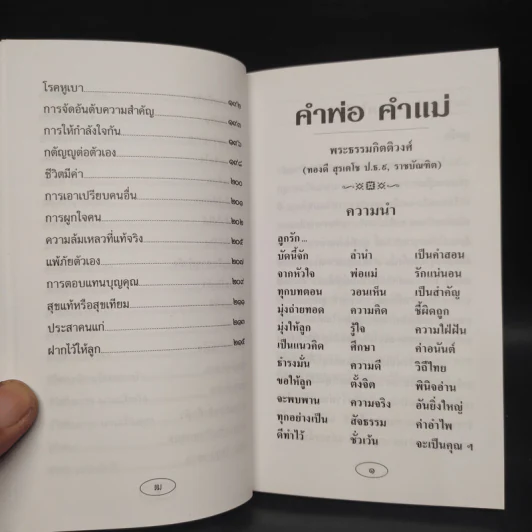 โรคหูเบา ๑๙๒
การจัดอันดับความสำคัญ ๑๙๓
การให้กำลังใจกัน ๑๙๖
กตัญญูต่อตัวเอง ๑๙๘
ชีวิตมีค่า ๒๐๐
การเอาเปรียบคนอื่น ๒๐๑
การผูกใจคน ๒๐๒
ความล้มเหลวที่แท้จริง ๒๐๕
แพ้ภัยตัวเอง
การตอบแทนบุญคุณ
สุขแท้หรือสุขเทียม ๒๑๑
ประสาคนแก่
ฝากไว้ให้ลูก
คำพ่อ คำแม่
พระธรรมกิตติวงศ์
(ทองดี สุรเตโช ป.ธ.๙, ราชบัณฑิต)
ความนำ
ลูกรัก...
บัดนี้จัก ลำนำ เป็นคำสอน
จากหัวใจ พ่อแม่ รักแน่นอน
ทุกบทตอน วอนเห็น เป็นสำคัญ
มุ่งถ่ายทอด ความคิด ชี้ผิดถูก
มุ่งให้ลูก รู้ใจ ความใฝ่ฝัน
เป็นแนวคิด ศึกษา ค่าอนันต์
ธำรงมั่น ความดี วิถีไทย
ขอให้ลูก ตั้งจิต พินิจอ่าน
จะพบพาน ความจริง อันยิ่งใหญ่
ทุกอย่างเป็น สัจธรรม ค่าอำไพ
ดีทำไว้ ชั่วเว้น จะเป็นคุณ ฯ
๑